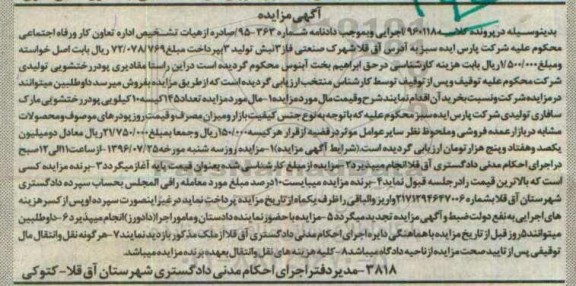 آگهی مزایده
بدینوسیله در پرونده کلاسه ۹۶۰۱۱۸۸ اجرایی و بموجب دادنامه شماره ۹۵-۳۶۳ صادره از هیات تشخیص اداره تعاون کار و رفاه اجتماعی
محکوم علیه شرکت پارس ایده سبز به آدرس آق قلا شهرک صنعتی فاز ۲ نبش تولید ۳ بپرداخت مبلغ ۷۲/۰۷۸/۷۶۹ ریال بابت اصل خواسته
و مبلغ ۱/۵۰۰/۰۰۰ ریال بابت هزینه کارشناسی در حق ابراهیم بخت آبنوس محکوم گردیده است در این راستا مقادیری پودر رختشویی تولیدی
شرکت محکوم علیه توقیف و پس از توقیف توسط کارشناس منتخب ارزیابی گردیده است که از طریق مزایده بفروش میرسد داوطلبین میتوانند
در مزایده شرکت و نسبت بخرید آن اقدام نمایند شرح و قیمت مال مورد مزایده ۱- مال مورد مزایده تعداد ۱۴۵ کیسه ۱۰ کیلویی پودر رختشویی مارک
سافاری تولیدی شرکت پارس ایده سبز محکوم علیه که با توجه به نوع جنس کیفیت بازار و میزان مصرف و قیمت روز پودرهای موصوف و محصولات
مشابه در بازار عمده فروشی و ملحوظ نظر سایر عوامل موثر در قضیه از قرار هر کیسه ۱۵۰/۰۰۰ ریال و جمعا بمبلغ ۲۱/۷۵۰/۰۰۰ ریال معادل دو میلیون
یکصد و هفتاد و پنج هزار تومان ارزیابی گردیده است. (شرایط آگهی مزایده) ۱- مزایده روز سه شنبه مورخه ۱۳۹۶/۰۷/۲۵ از ساعت ۱۱ الی ۱۲ صبح
در اجرای احکام مدنی دادگستری آق قلا انجام میپذیرد ۲- مزایده از مبلغ کارشناسی شده بعنوان قیمت پایه آغاز میگردد ۳- برنده مزایده کسی
است که بالاترین قیمت را در جلسه قبول نماید ۴- برنده مزایده میبایست ۱۰ درصد مبلغ مورد معامله را فی المجلس بحساب سپرده دادگستری
شهرستان آق قلا بشماره ۲۱۷۱۲۹۴۶۴۷۰۰۶ واریز و الباقی را ظرف یکماه از تاریخ مزایده پرداخت نماید در غیر اینصورت سپرده او پس از کسر هزینه
های اجرایی به نفع دولت ضبط و آگهی مزایده تجدید میگردد ۵- مزایده با حضور نماینده دادستان و مامور اجرا (دادورز) انجام میپذیرد ۶- داوطلبین
میتوانند ۵ روز قبل از تاریخ مزایده با هماهنگی دایره اجرای احکام مدنی دادگستری آق قلا از ملک مذکور بازدید نمایند ۷- هر گونه نقل و انتقال مال
توقیفی پس از تایید صحت مزایده از ناحیه دادگاه میباشد ۸- کلیه هزینه های نقل و انتقال بعهده برنده مزایده میباشد.
۳۸۱۸- مدیر دفتر اجرای احکام مدنی دادگستری شهرستان آق قلا- کتوکی